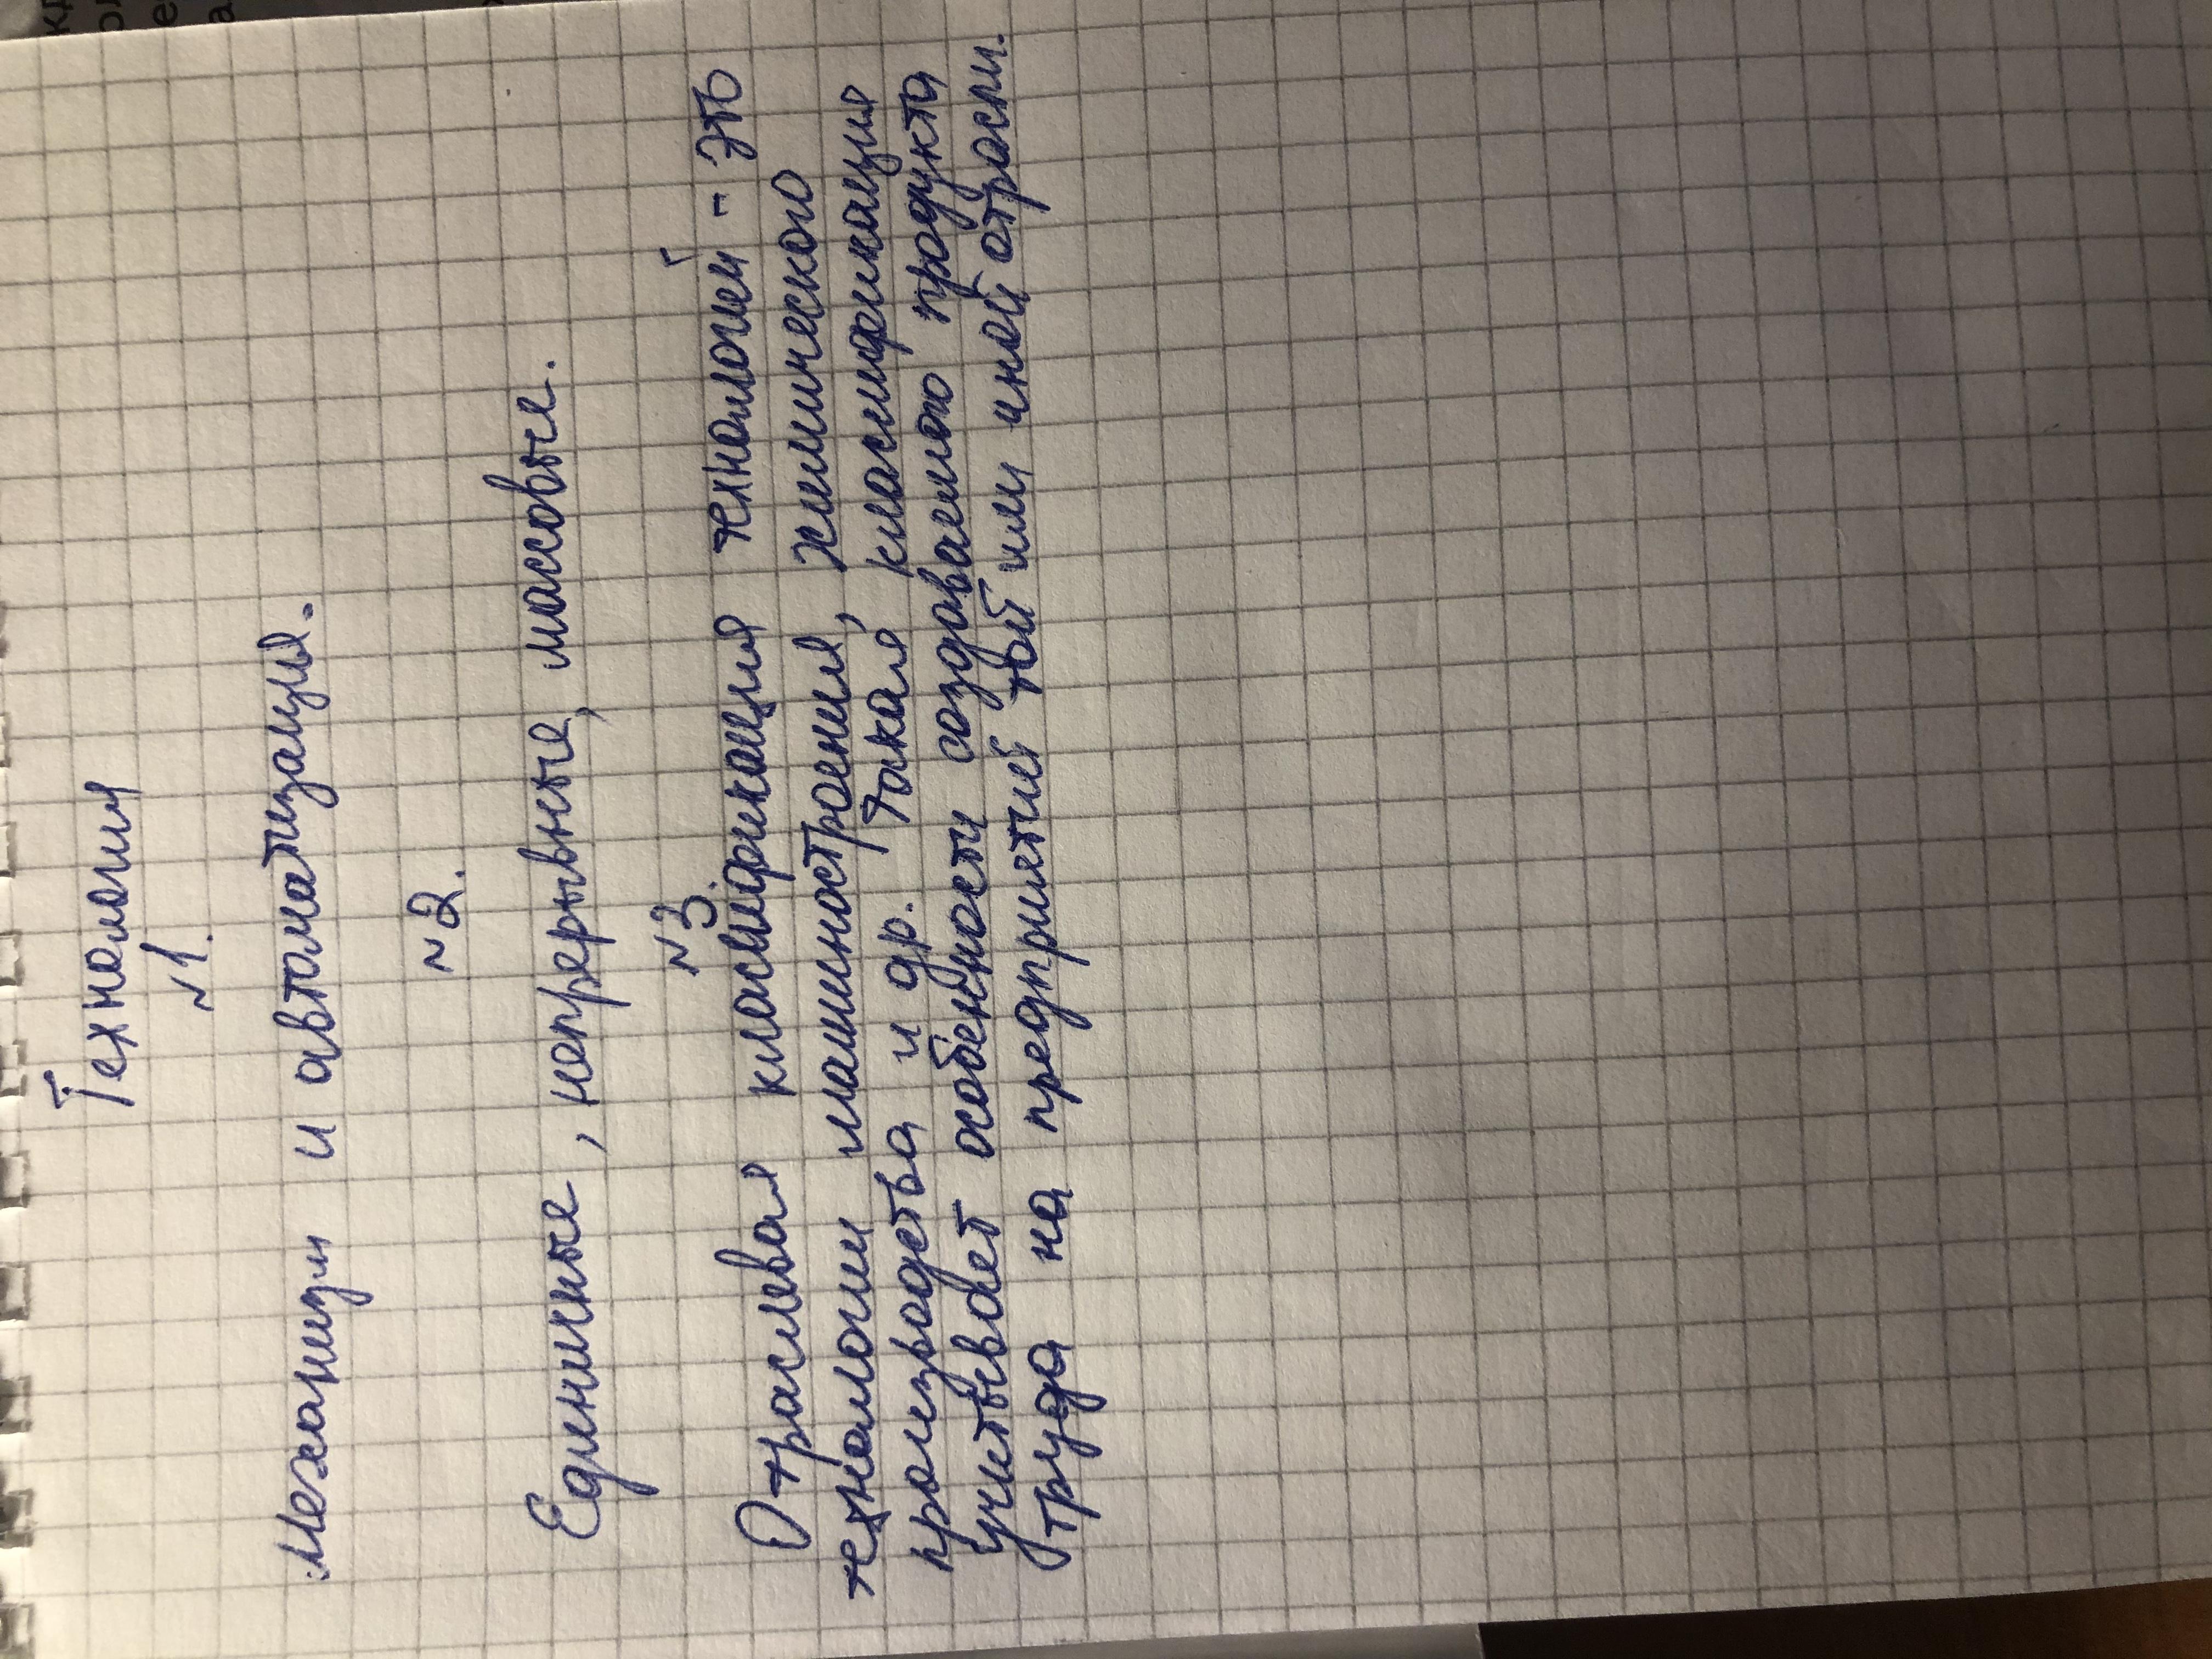 Технологии
№1.
Механизм и автоматизация.
№2.
Единичные, непрерывные, массовые.
№3.
Отраслевая класификация технологий - это
технологии машиностроения, химического
произродства и др. Такая класификация
учитывает особенности создоваемого продукта
труда на предприятие той или иной отрасли.